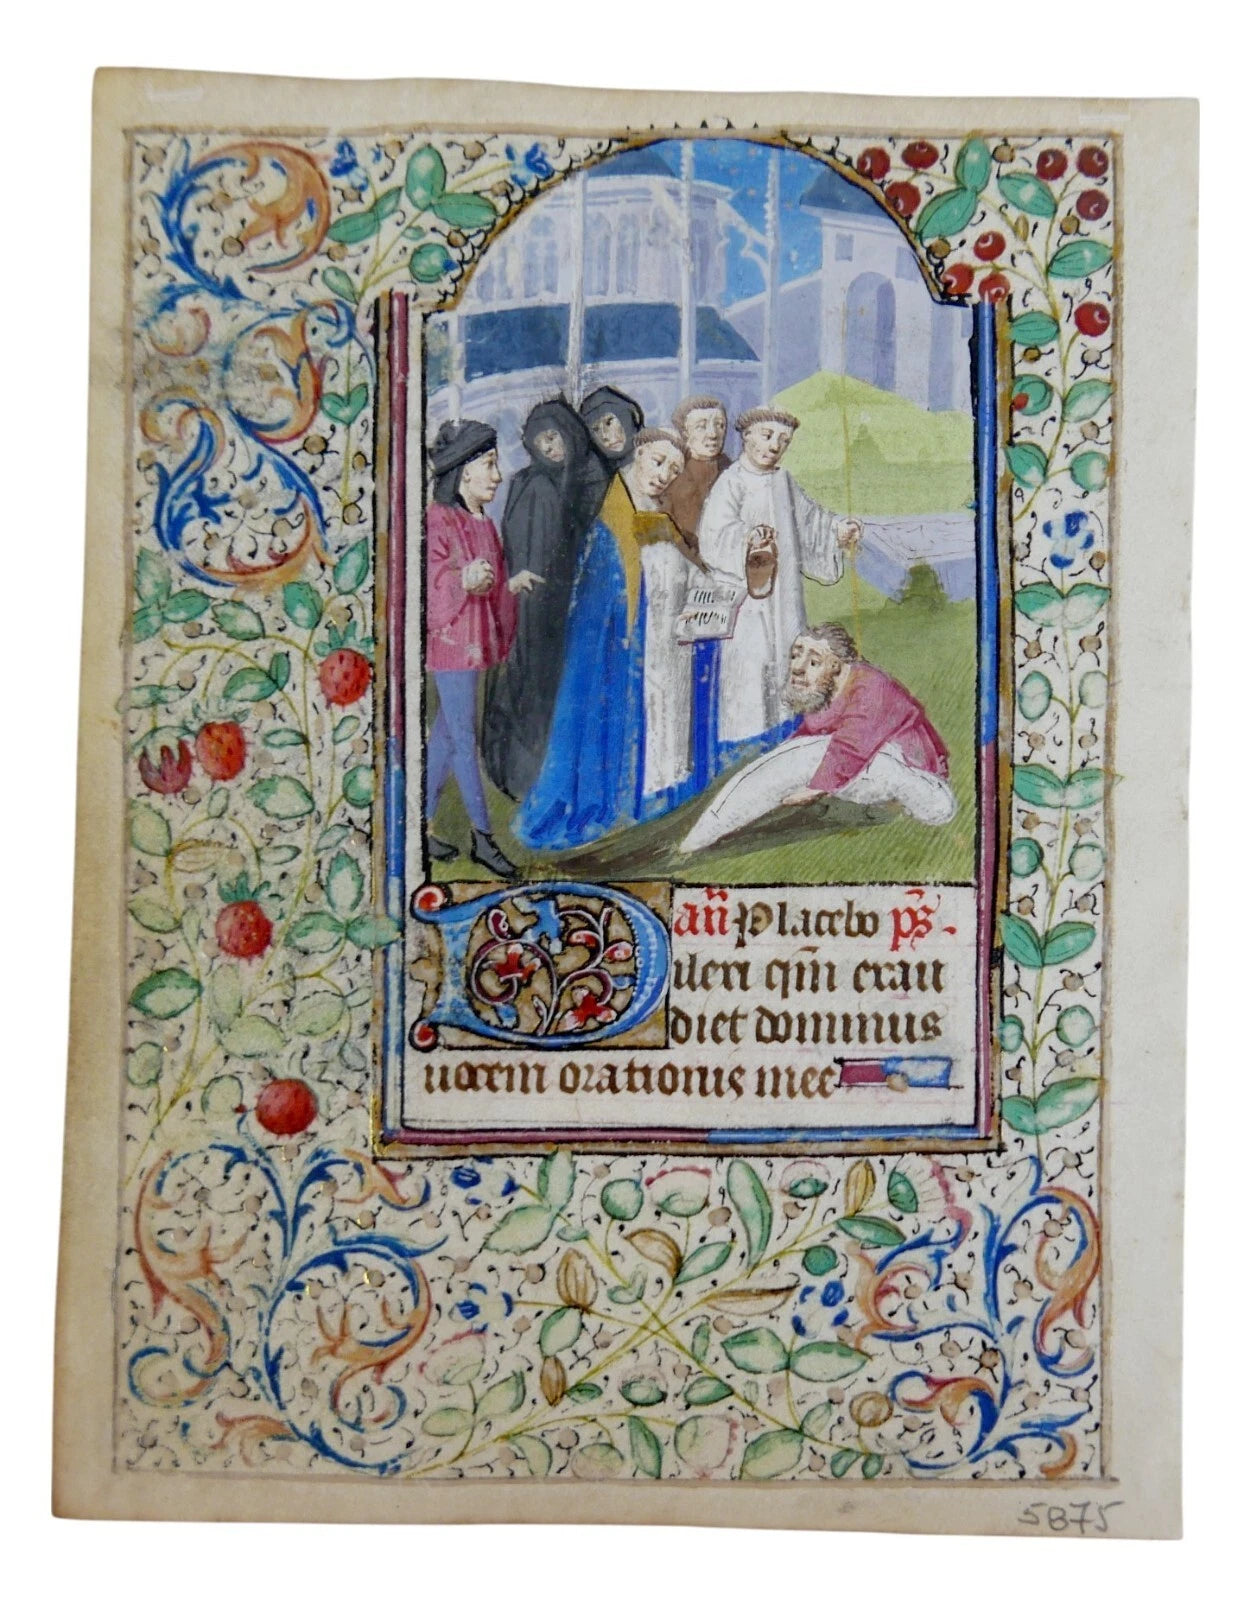 an̄ Placebo p̄s.
Dilexi qm̄ exau
diet dominus
uocem orationis mee
5875